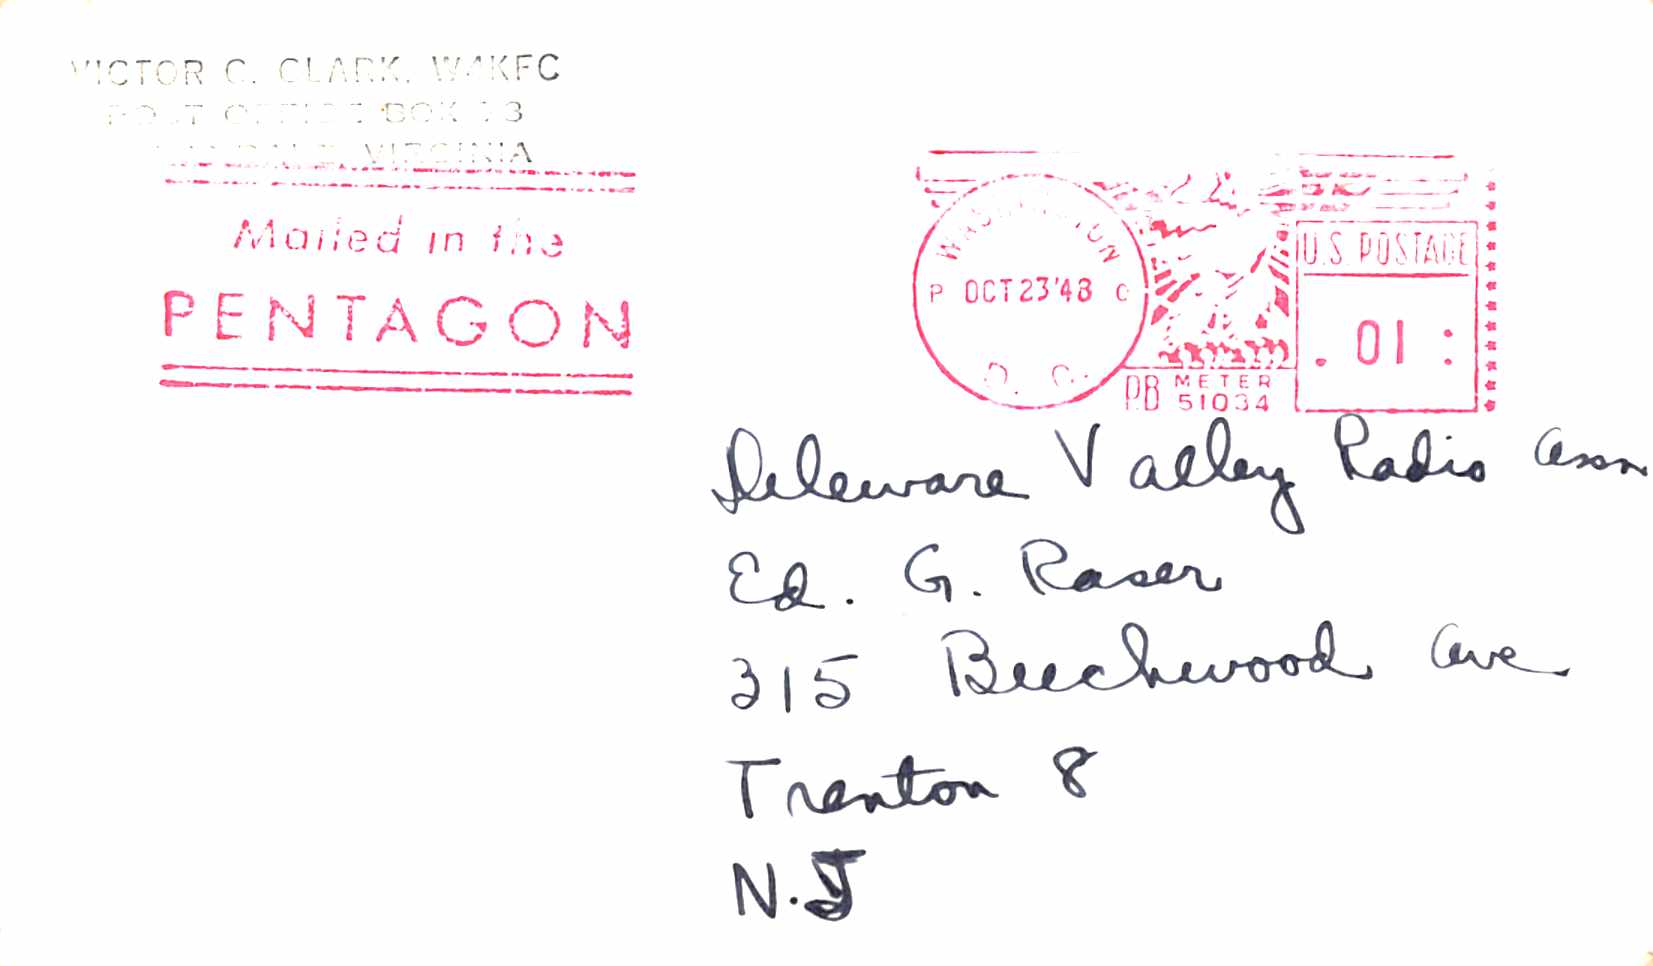 VICTOR C. CLARK, W4KFC
POST OFFICE BOX
VIRGINIA
Mailed in the
PENTAGON
WASHINGTON
P OCT 23 '48 C
D. C.
U.S. POSTAGE
.01
PB METER
51034
Deleware Valley Radio Assn
Ed. G. Raser
315 Beechwood Ave
Trenton 8
N.J